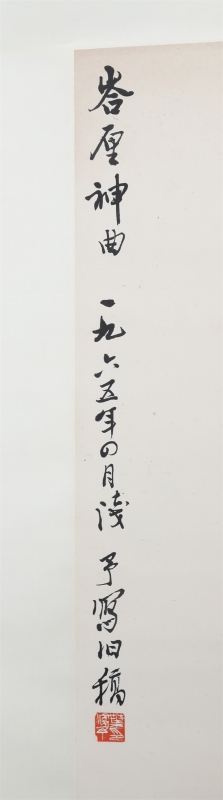 峇厘神曲 一九六五年四月淺予寫旧稿